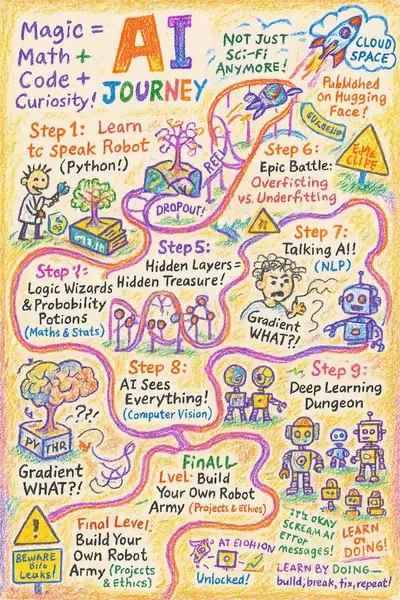 Magic =
Math +
Code +
Curiosity!
AI
JOURNEY
NOT JUST
Sci-Fi
ANYMORE!
CLOUD
SPACE
Published
on Hugging
Face!
Step 1: Learn
to Speak Robot
(Python!)
DROPOUT!
Step 6:
Epic Battle:
Overfitting
vs. Underfitting
Step 5:
Hidden Layers =
Hidden Treasure!
Step 7:
Talking AI!!
(NLP)
Logic Wizards
& Probability
Potions
(Maths & Stats)
Gradient
WHAT?!
Step 8:
AI Sees
Everything!
(Computer Vision)
Step 9:
Deep Learning
Dungeon
??!
PY THR
Gradient
WHAT?!
FinALL
LvεL: Build
Your Own Robot
Army (Projects & Ethies)
BEWARE
Leaks!
Final Level:
Build Your
Own Robot
Army (Projects
& Ethics)
AT EIOHION
Unlocked!
IT'S OKAY
SCREAM AI
error
messages!
LEARN
DOING!
LEARN BY DOING—
build, break, fix, repeat!